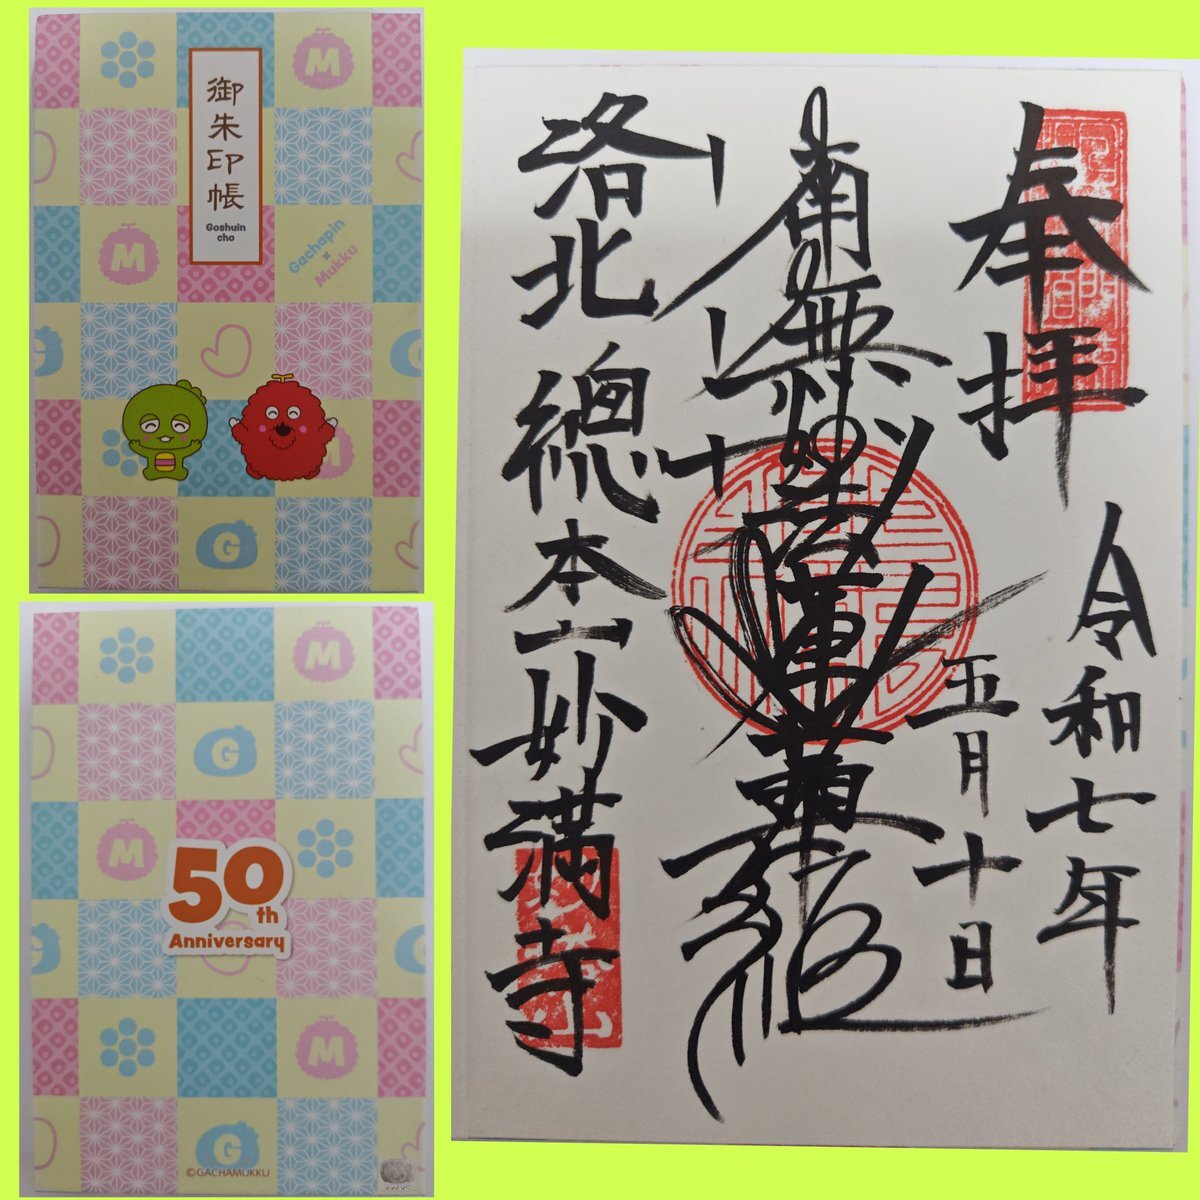 御朱印帳
Goshuin
cho
M
M
Gachapin
×
Mukku
G
G
M
G
M
G
M
50th
Anniversary
G
M
G
©GACHAMUKKU
奉拝
令和七年
五月十日
南無妙法蓮華経
洛北 總本山妙満寺